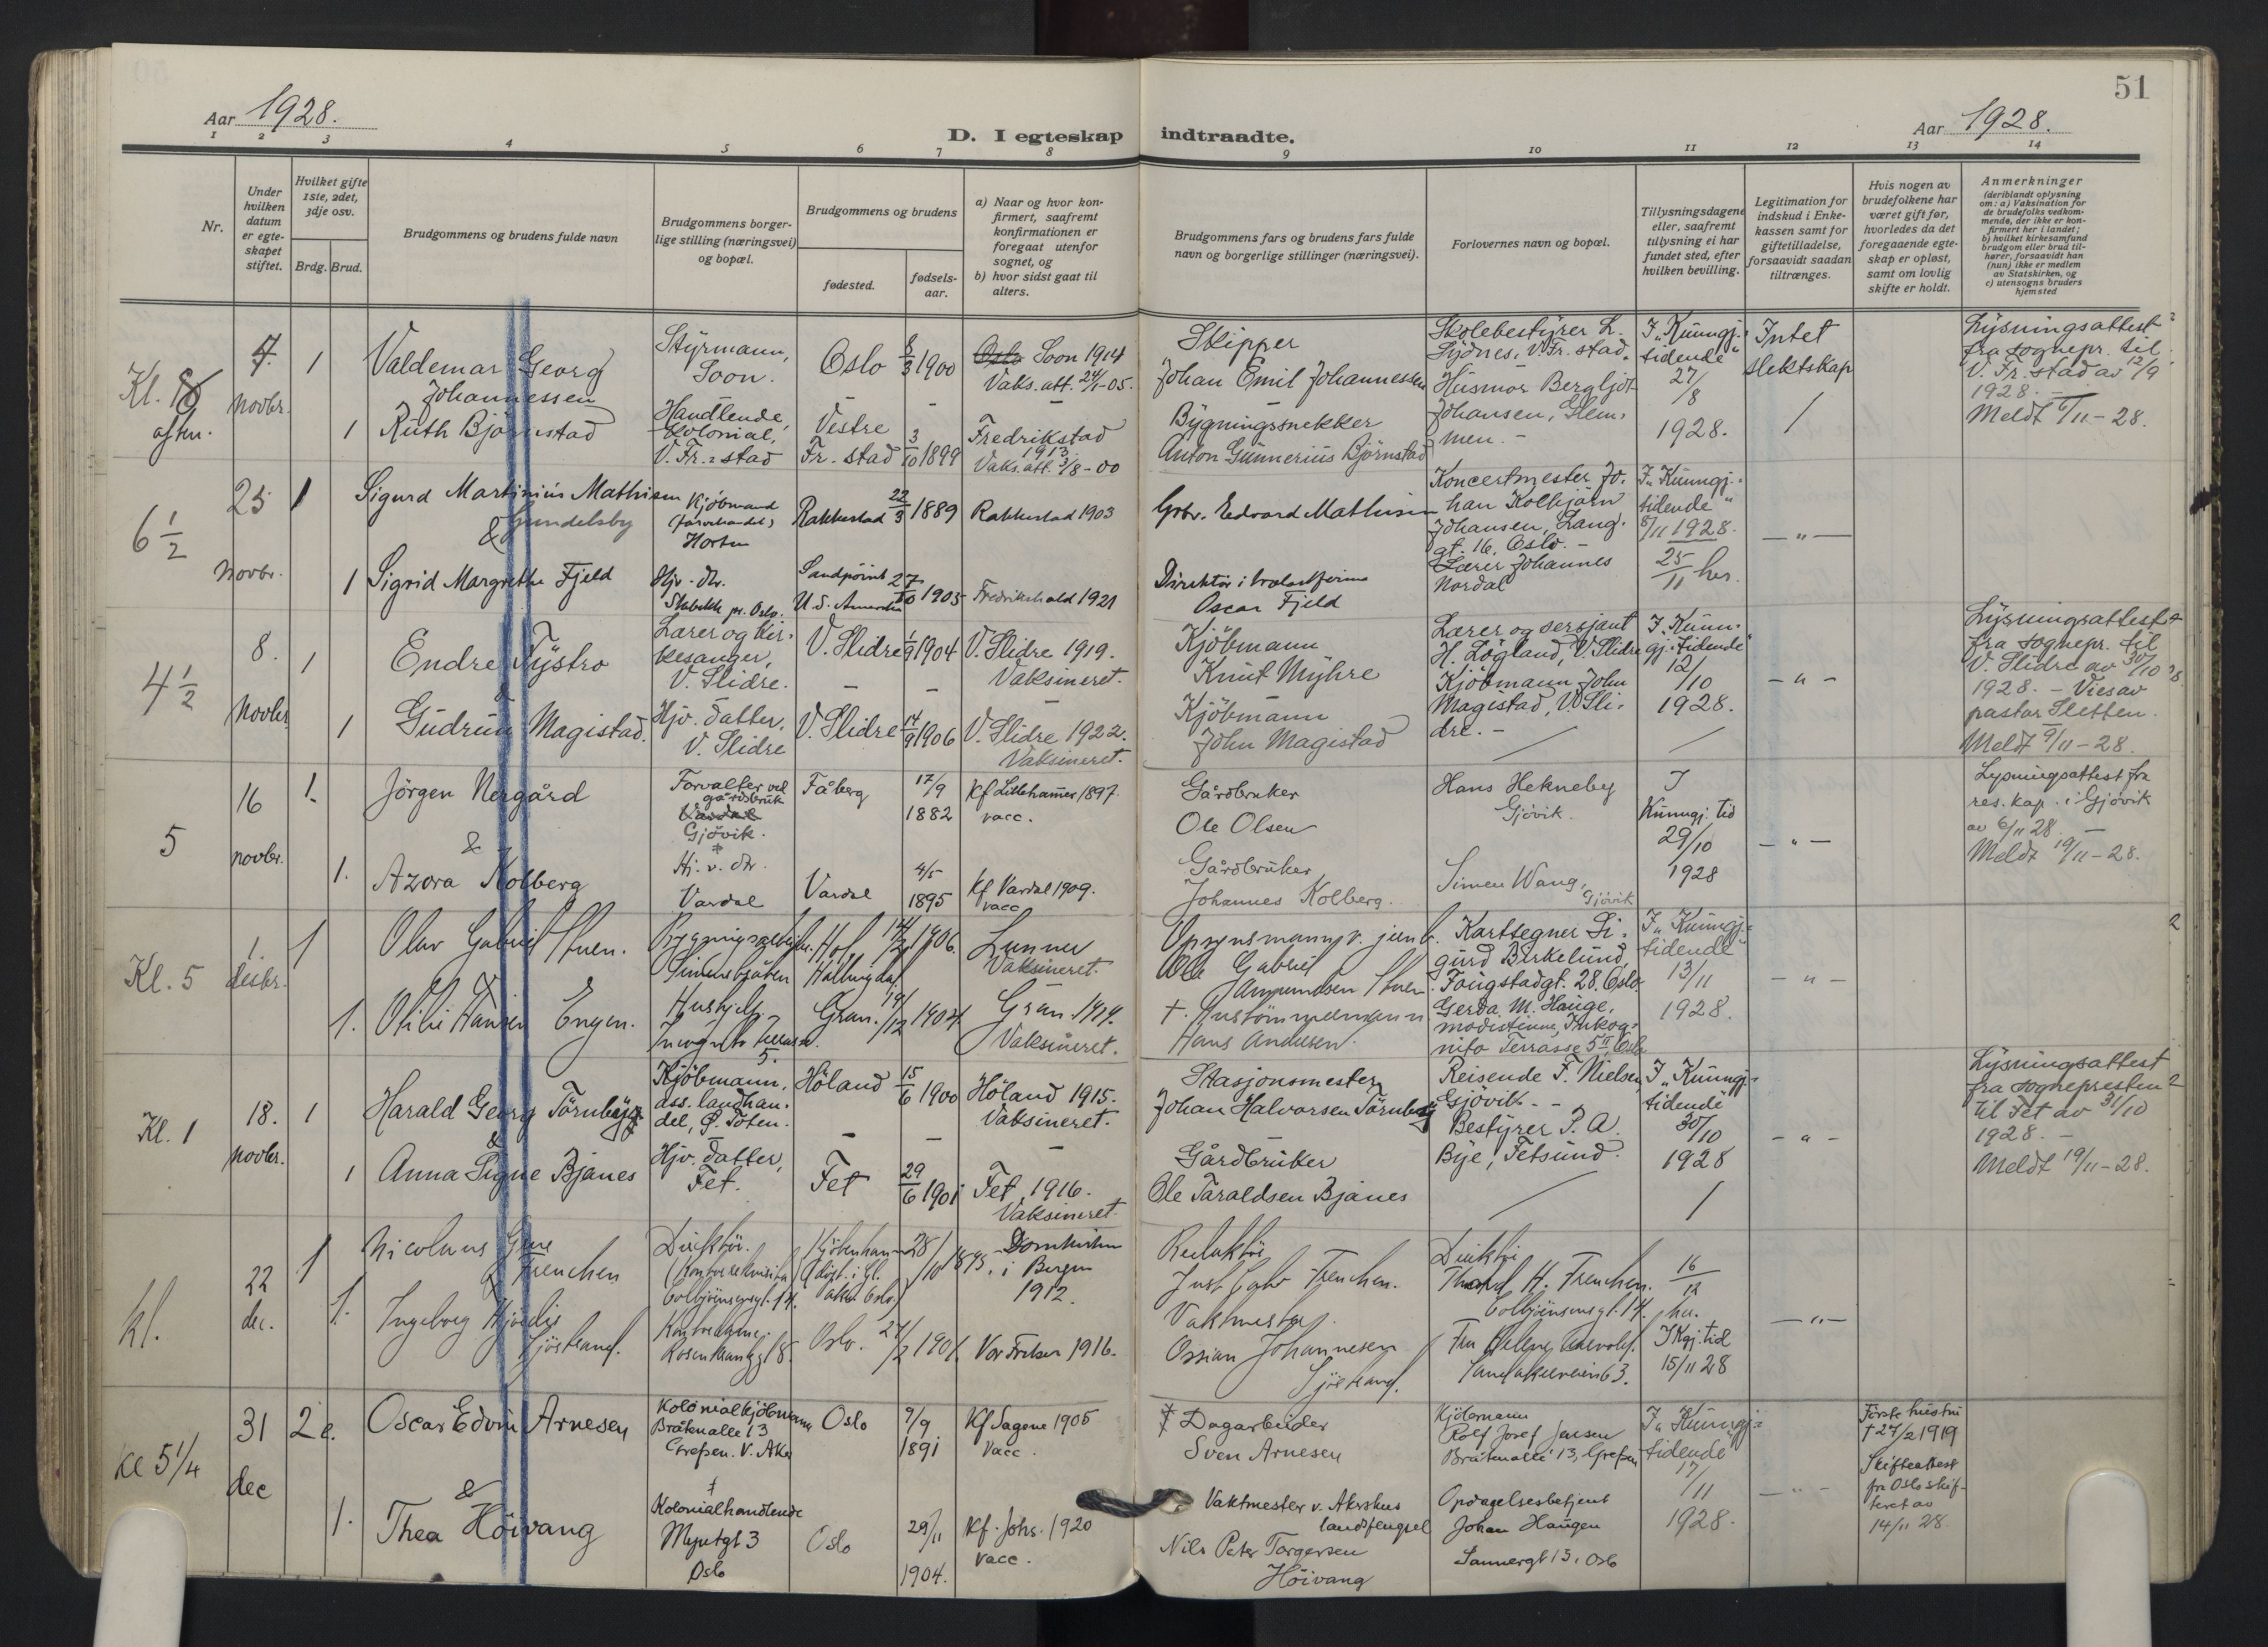 51
Aar 1928.
D. I egteskap indtraadte.
Aar 1928.
1 2 3 4 5 6 7 8 9 10 11 12 13 14
Nr.
Under hvilken datum er egteskapet stiftet.
Hvilket gifte 1ste, 2det, 3dje osv.
Brdg. Brud.
Brudgommens og brudens fulde navn
Brudgommens borgerlige stilling (næringsvei) og bopæl.
Brudgommens og brudens
fødested.
fødselsaar.
a) Naar og hvor konfirmert, saafremt konfirmationen er foregaat utenfor sognet, og
b) hvor sidst gaat til alters.
Brudgommens fars og brudens fars fulde navn og borgerlige stillinger (næringsvei).
Forlovernes navn og bopæl.
Tillysningsdagene eller, saafremt tillysning ei har fundet sted, efter hvilken bevilling.
Legitimation for indskud i Enkekassen samt for giftetilladelse, forsaavidt saadan tiltrænges.
Hvis nogen av brudefolkene har været gift før, hvorledes da det foregaaende egteskap er opløst, samt om lovlig skifte er holdt.
Anmerkninger
(deriblandt oplysning om: a) Vaksination for de brudefolks vedkommende, der ikke er konfirmert her i landet;
b) hvilket kirkesamfund brudgom eller brud tilhører, forsaavidt han (hun) ikke er medlem av Statskirken, og
c) utensogns bruders hjemsted
Kl. 8 aften.
7. novbr.
1
Valdemar Georg Johannessen
Styrmann, Soon.
Oslo
8/3 1900
Oslo Soon 1914
Vaks. att. 24/1-05.
Skipper
Johan Emil Johannessen
Skolebestyrer L. Sydnes, V. Fr. stad.
Husmor Bergljot Johansen, Glemmen. -
I „Kunngj. tidende"
27/8
1928.
Intet slektskap
Lysningsattest fra sognepr. til V. Fr. stad av 12/9 1928. -
Meldt 9/11-28.
1
Ruth Björnstad
Handlende, kolonial, V. Fr. stad
Vestre Fr. stad
3/10 1899
Fredrikstad 1913
Vaks. att. 3/8-00
Bygningssnekker
Anton Gunnerius Björnstad
6 1/2
25 novbr.
1
Sigurd Martinius Mathisen Gundelsby
&
Kjöbmand Horten
Rakkestad
22/3 1889
Rakkestad 1903
Grbr. Edvard Mathisen
Koncertmester Johan Kolbjørn Johansen, Langgt. 16, Oslo. -
Lærer Johannes Nordal
I „Kunngj. tidende"
8/11 1928.
25/11 her.
- " -
1
Sigrid Margrethe Fjeld
Hjv. dtr.
Stabekk pr. Oslo.
Sandpoint U. S. Amerika
27/10 1905
Fredrikshald 1921
Direktör i trelastfirma
Oscar Fjeld
4 1/2
8. Novbr.
1
Endre Tystro
&
Lærer og kirkesanger, V. Slidre.
V. Slidre
1/9 1904
V. Slidre 1919.
Vaksineret.
Kjöbmann
Knut Myhre
Lærer og sersjant H. Lögland, V. Slidre
Kjöbmann John Magistad, V. Slidre. -
I „Kunngj. tidende"
12/10
1928.
- " -
Lysningsattest fra sognepr. til V. Slidre av 30/10 1928. - Vies av pastor Sletten.
Meldt 9/11-28.
1
Gudrun Magistad.
Hjv. datter, V. Slidre
V. Slidre
14/9 1906
V. Slidre 1922.
Vaksineret.
Kjöbmann
John Magistad
5
16 novbr.
1.
Jörgen Nergård
&
Forvalter ved gårdsbruk
Gjövik.
Fåberg
17/9 1882
Kf Lillehamer 1897.
vacc.
Gårdbruker
Ole Olsen
Hans Hekneby
Gjövik.
I Kunngj. tid
29/10
1928
- " -
Lysningsattest fra res. kap. i Gjövik av 6/11 28. -
Meldt 19/11-28.
1.
Azora Kolberg
Hj. v. dtr.
Vardal
Vardal
4/5 1895
Kf Vardal 1909.
vacc
Gårdbruker
Johannes Kolberg.
Simen Wang, Gjövik
Kl. 5
1. desbr.
1
Olav Gabriel Stuen.
Hol, Hallingdal
1906.
Lunner
Vaksineret.
Opsynsmann v. jernb.
Ole Gabriel Amundsen Stuen
Karttegner Sigurd Birkelund, Fougstadgt. 28. Oslo.
Gerda M. Hauge, modistinne, Inkognito Terrasse 5 II, Oslo
I „Kunngj. tidende"
13/11
1928.
- " -
1.
Otilie Hansen Engen.
Hushjelp.
Incognito terrasse 5.
Gran.
19/12 1904
Gran. 1919.
Vaksineret.
+ Hans Andersen.
Kl. 1
18. novbr.
1
Harald Georg Törnby
&
Kjöbmann, ass. landhandel, Ö. Toten.
Höland
15/6 1900
Höland 1915.
Vaksineret.
Stasjonsmester
Johan Halvorsen Törnby
Reisende F. Nielsen, Gjövik - -
Bestyrer P. A. Bye, Fetsund.
I „Kunngj. tidende"
30/10
1928
- " -
Lysningsattest fra sognepresten til Fet av 31/10 1928. -
Meldt 19/11-28.
1
Anna Signe Bjanes
Hjv. datter, Fet.
Fet
29/6 1901
Fet 1916.
Vaksineret.
Gårdbruker
Ole Taraldsen Bjanes
kl.
22 dec.
1
Nicolaus Frenchen
&
Direktör.
Colbjörnsensgt. 14.
28/10
Domkirken i Bergen 1912.
Redaktör
Just Frenchen.
Direktör
H. Frenchen.
Colbjörnsensgt. 14.
16/12 her.
I Kgj. tid
15/11 28
- " -
1.
Ingeborg Hjördis Sjöstrand.
Rosenkrantzgt 8.
Oslo.
27/2 1901.
Vor Frelser 1916.
Vaktmester
Ossian Johannesen Sjöstrand.
Fru Helene
Sandakerveien 63.
Kl 5 1/4
31 dec
2 e.
Oscar Edvin Arnesen
&
Kolonialkjöbmann
Bråtenalle 13
Grefsen. V. Aker
Oslo
9/9 1891
Kf Sagene 1905
Vacc.
† Dagarbeider
Sven Arnesen
Kjöbmann
Rolf Josef Jansen
Bråtenalle 13, Grefsen
I „Kunngj. tidende"
17/11
1928.
- " -
Förste hustru † 27/2 1919
Skifteattest fra Oslo skifteret av 14/11 28.
1.
Thea Höivang
Kolonialhandlende
Oslo
Oslo
29/11 1904.
Kf. Johs. 1920
Vacc.
Vaktmester v. Akershus landsfengsel
Nils Peter Torgersen Höivang
Opdagelsesbetjent
Johan Haugen
Sannergt 13, Oslo